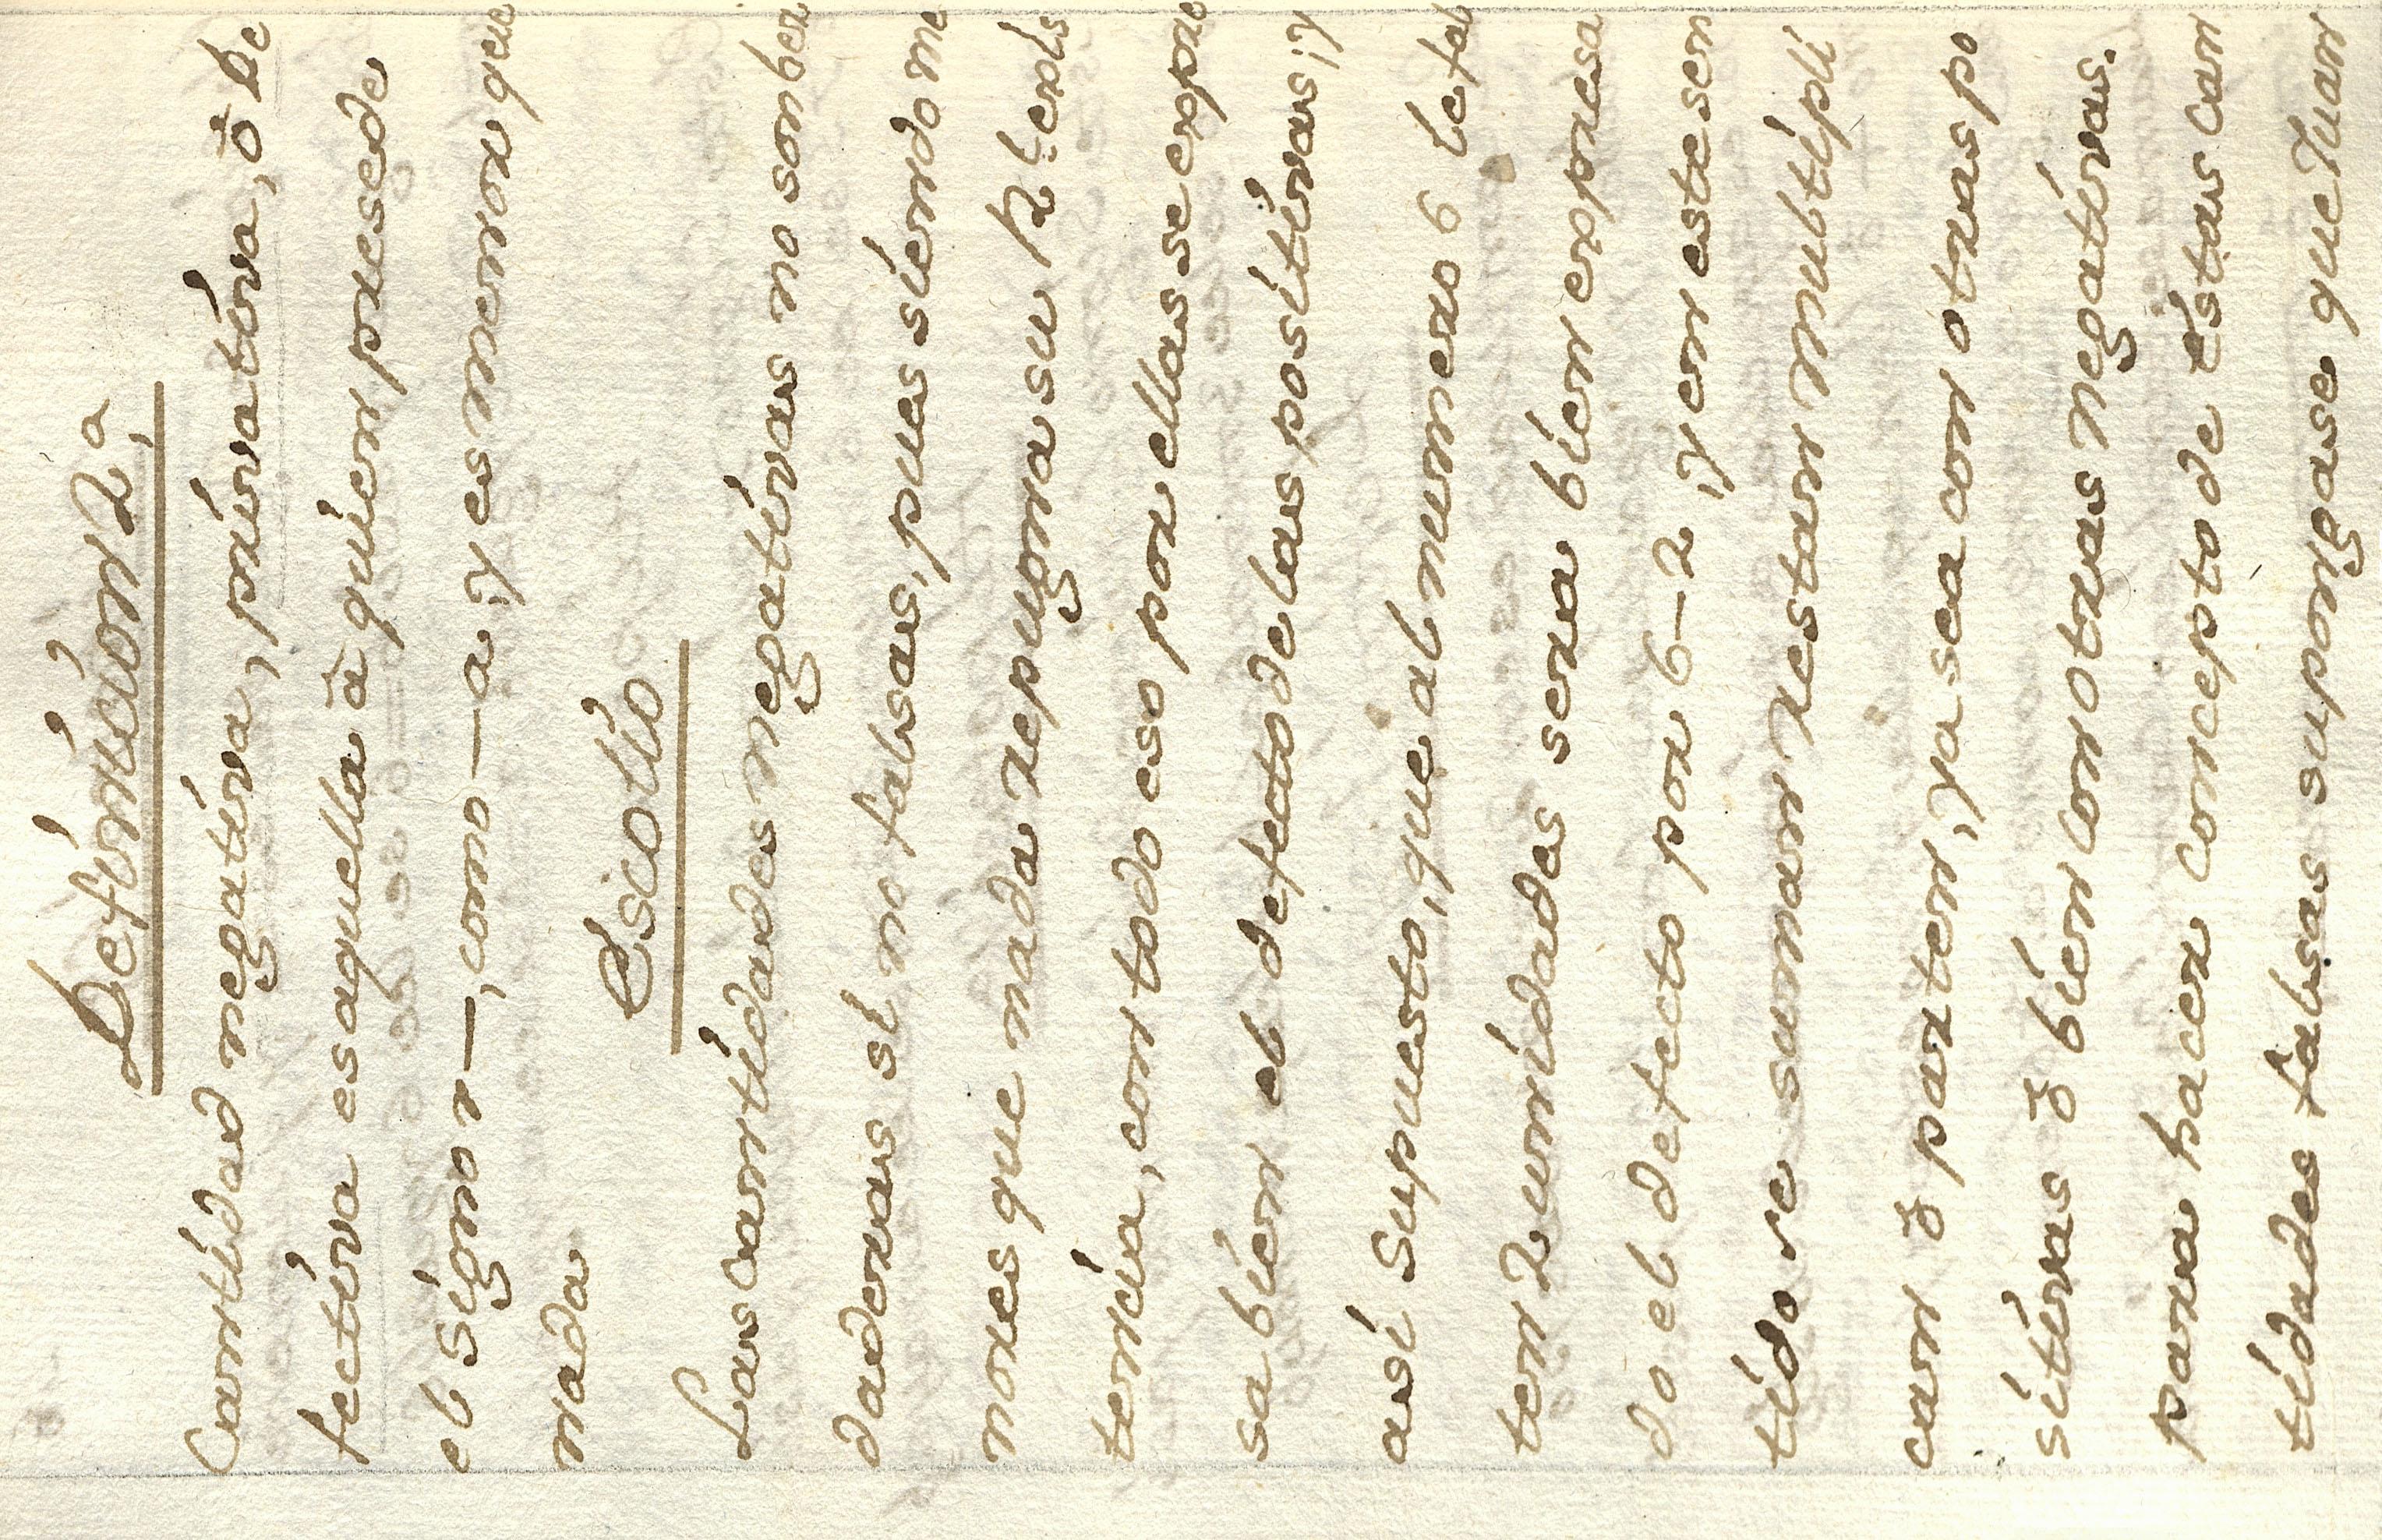 Definicion 2,ª
Cantidad negativa, privativa, ò De
fectiva es aquella à quien presede
el signo r—, como — a, y es menor que
nada
Escolio
Las cantidades negativas no son ber
daderas si no falsas, pues siendo me
nores que nada repugna su R l exis
tencia, con todo eso por ellas se expre
sa bien el defecto de las positivas, y
asi supuesto, que al numero 6 le fal
ten 2 unidades sera bien expresa
do el defecto por 6–2, y en este sen
tido se suman restan multipli
can ò parten, ya sea con otras po
sitivas ò bien con otras negativas.
para hacer concepto de éstas can
tidades falsas supongase que Juan